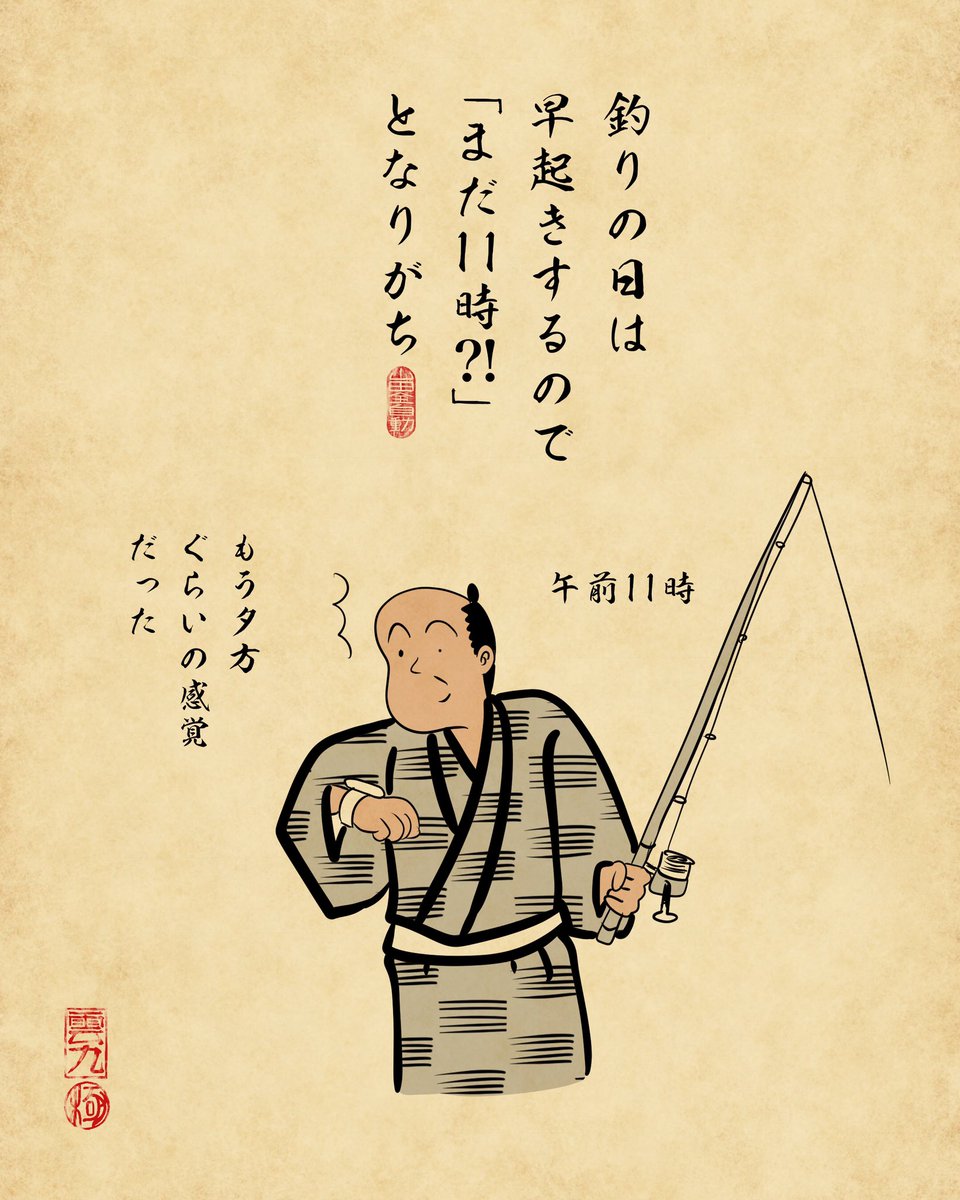 釣りの日は
早起きするので
「まだ11時?!」
となりがち
午前11時
もう夕方
ぐらいの感覚
だった